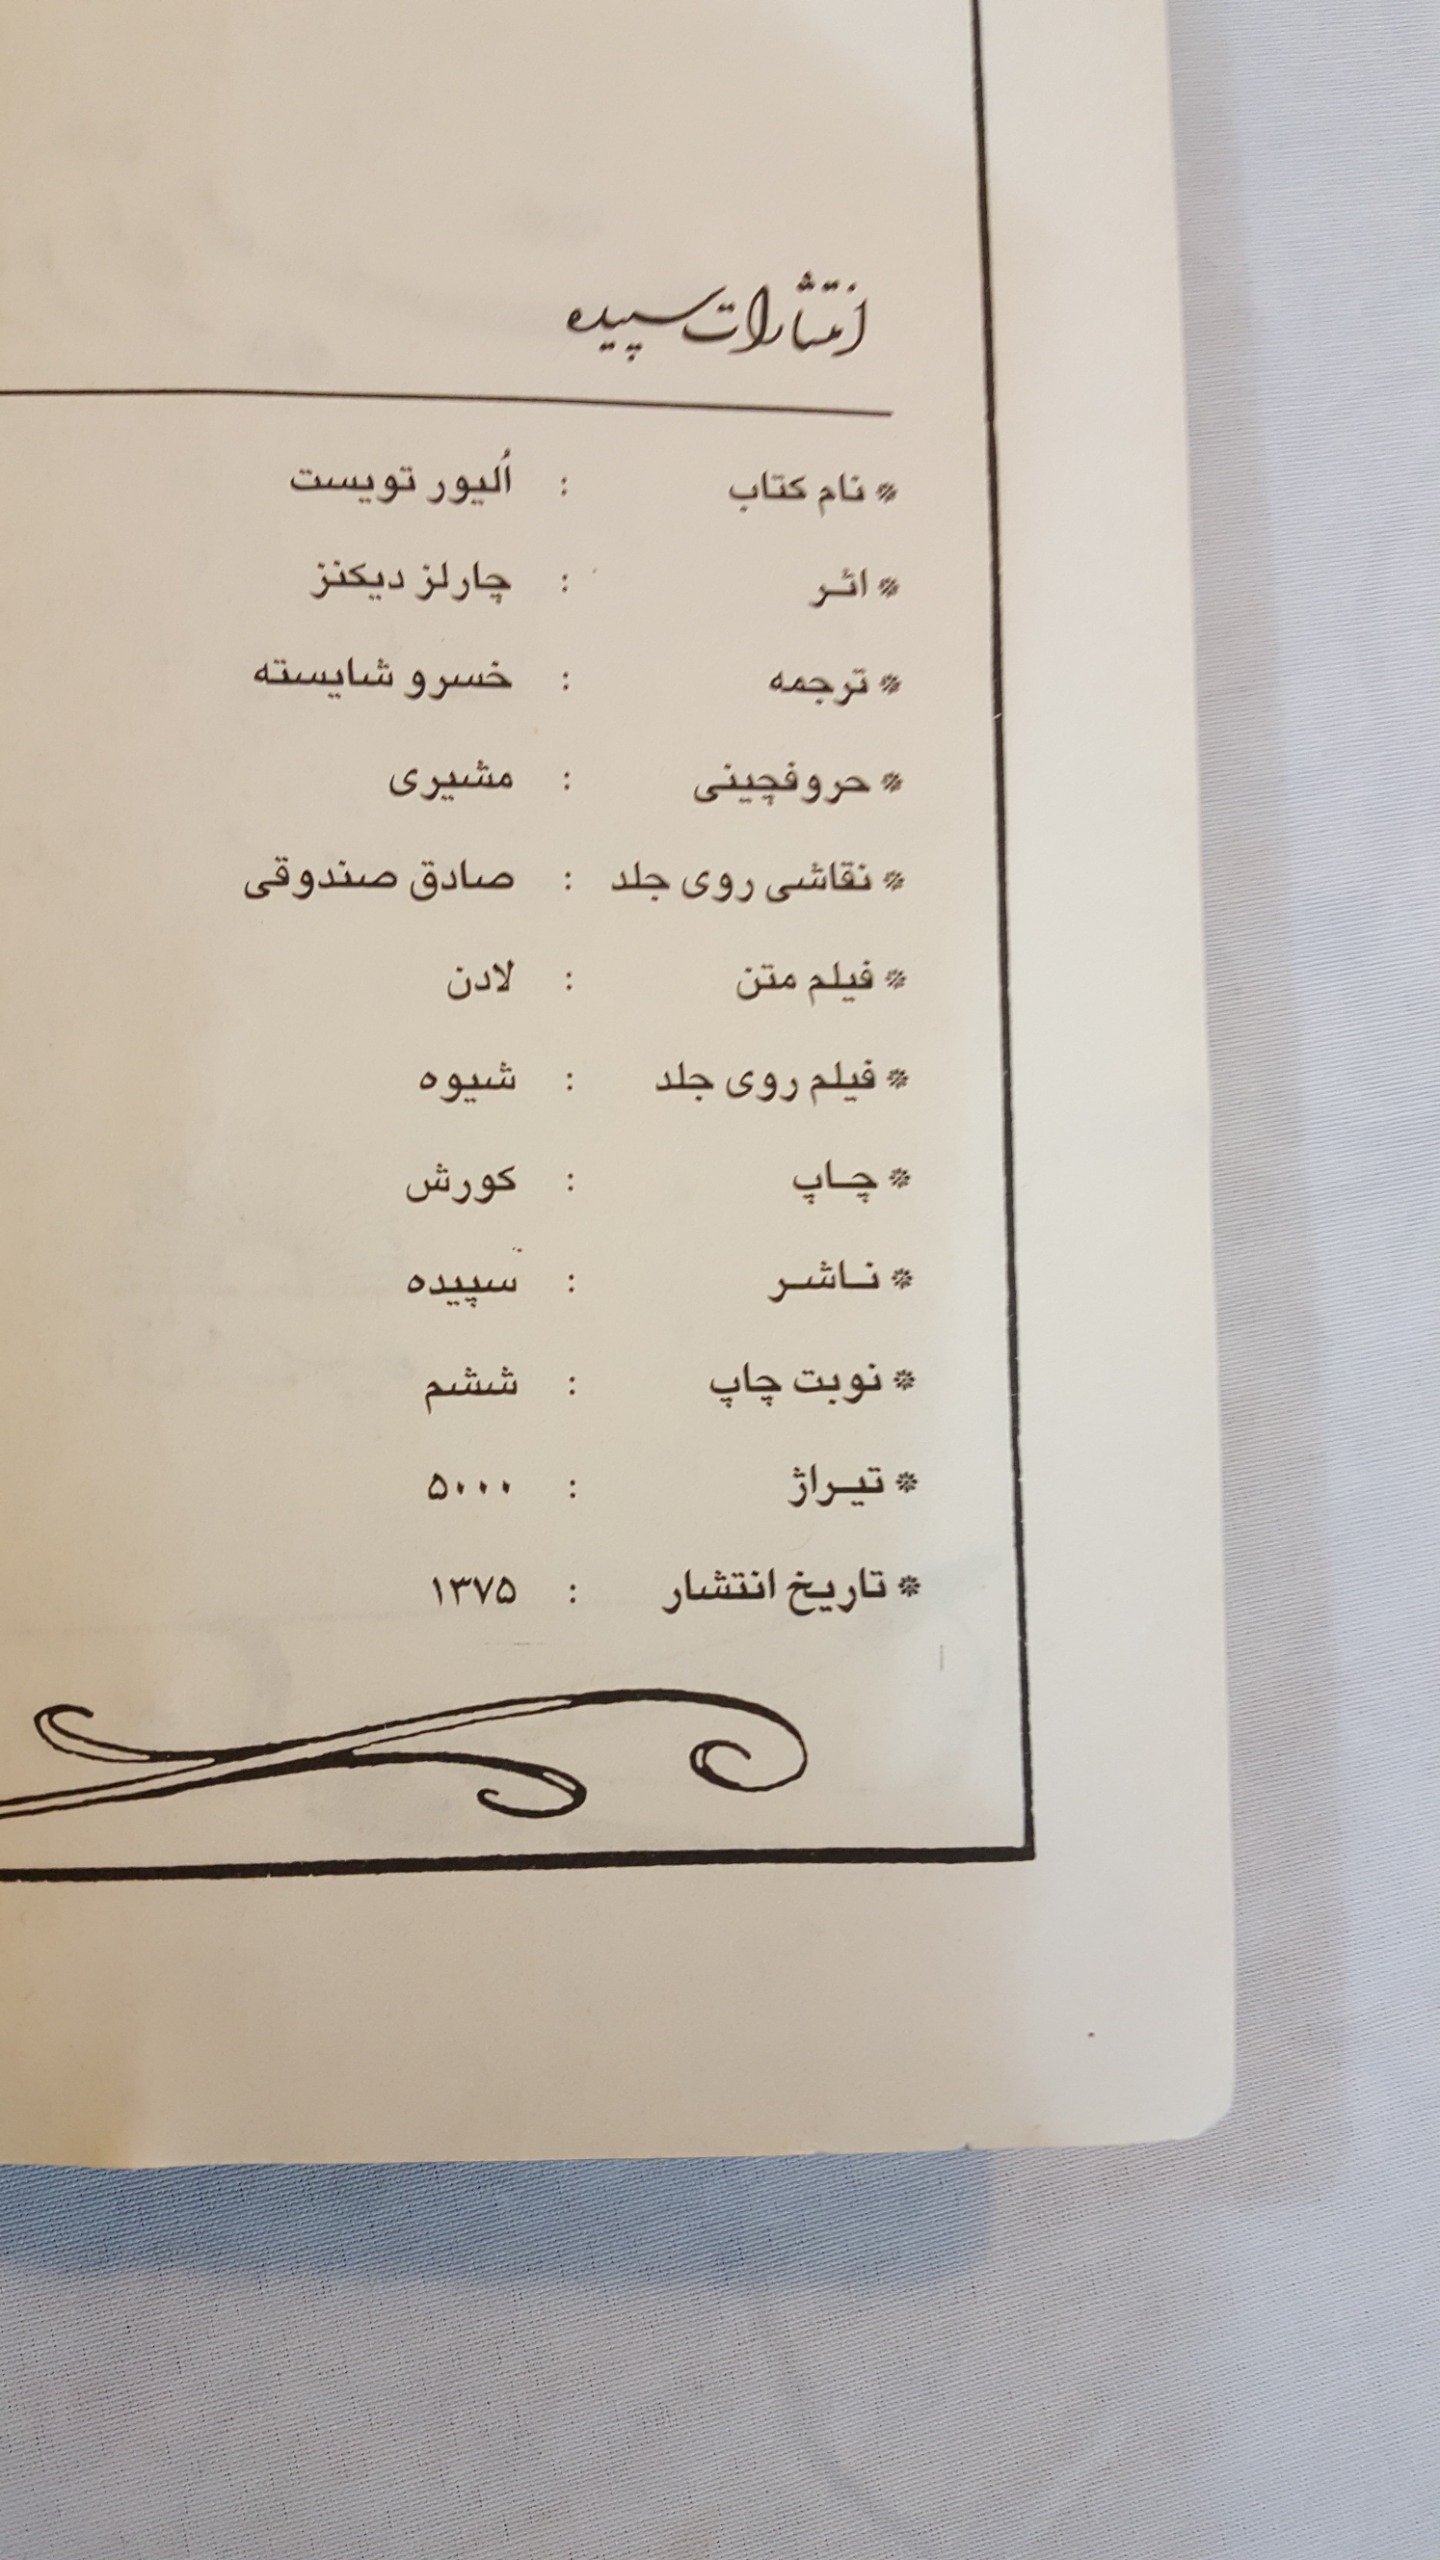 انتشارات سپیده
* نام کتاب : اُلیور تویست
* اثـر : چارلز دیکنز
* ترجمه : خسرو شایسته
* حروفچینی : مشیری
* نقاشی روی جلد : صادق صندوقی
* فیلم متن : لادن
* فیلم روی جلد : شیوه
* چـاپ : کورش
* نـاشـر : سپیده
* نوبت چاپ : ششم
* تیـراژ : ۵۰۰۰
* تاریخ انتشار : ۱۳۷۵